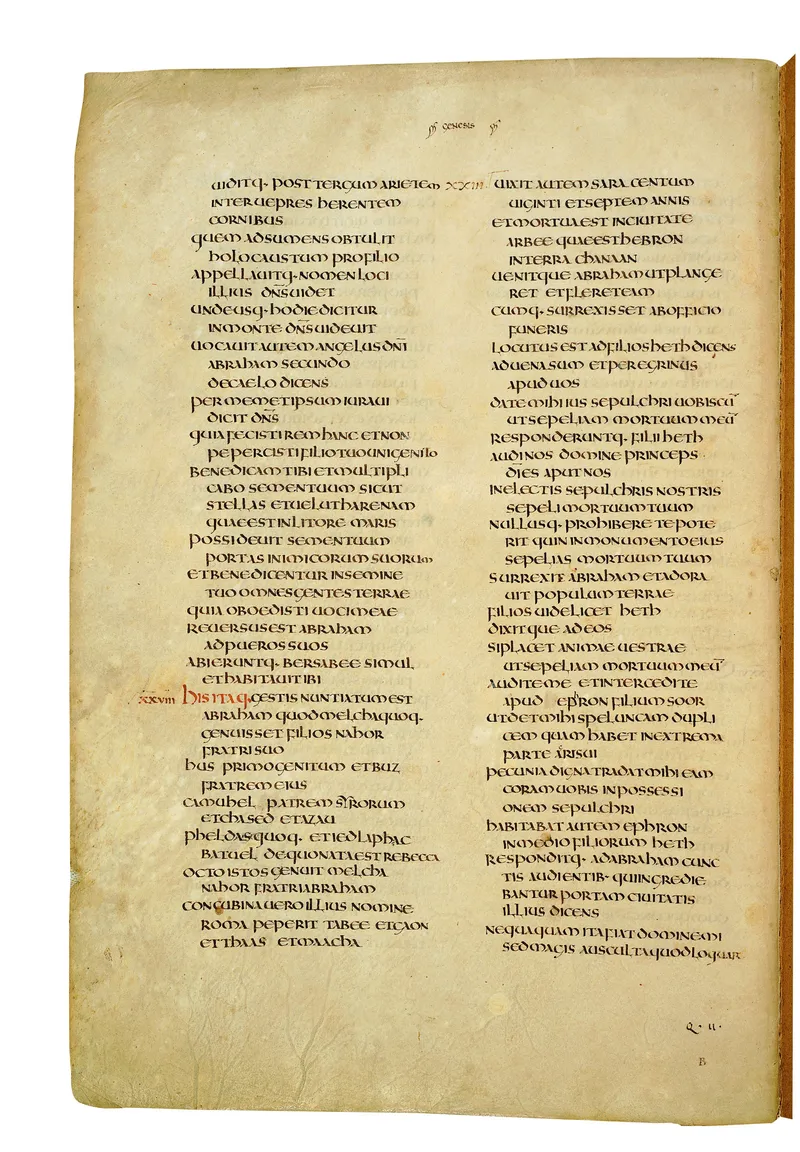 GENESIS
UIDITQ· POST TERGUM ARIETEM
INTER UEPRES HERENTEM
CORNIBUS
QUEM ADSUMENS OBTULIT
HOLOCAUSTUM PRO FILIO
APPELLAUITQ· NOMEN LOCI
ILLIUS DN̄S UIDET
UNDE USQ· HODIE DICITUR
IN MONTE DN̄S UIDEUIT
UOCAUIT AUTEM ANGELUS DN̄I
ABRAHAM SECUNDO
DE CAELO DICENS
PER MEMET IPSUM IURAUI
DICIT DN̄S
QUIA FECISTI REM HANC ET NON
PEPERCISTI FILIO TUO UNIGENITO
BENEDICAM TIBI ET MULTIPLI
CABO SEMEN TUUM SICUT
STELLAS ET UELUT HARENAM
QUAE EST IN LITORE MARIS
POSSIDEUIT SEMEN TUUM
PORTAS INIMICORUM SUORUM
ET BENEDICENTUR IN SEMINE
TUO OMNES GENTES TERRAE
QUIA OBOEDISTI UOCI MEAE
REUERSUS EST ABRAHAM
AD PUEROS SUOS
ABIERUNTQ· BERSABEE SIMUL
ET HABITAUIT IBI
XXVIII HIS ITAQ· GESTIS NUNTIATUM EST
ABRAHAM QUOD MELCHA QUOQ·
GENUISSET FILIOS NAHOR
FRATRI SUO
HUS PRIMOGENITUM ET BUZ
FRATREM EIUS
CAMUHEL PATREM SYRORUM
ET CHASED ET AZAU
PHELDAS QUOQ· ET IEDLAPHAC
BATUEL DE QUO NATA EST REBECCA
OCTO ISTOS GENUIT MELCHA
NAHOR FRATRI ABRAHAM
CONCUBINA UERO ILLIUS NOMINE
ROMA PEPERIT TABEE ET GAON
ET THAAS ET MAACHA
XXIII UIXIT AUTEM SARA CENTUM
UIGINTI ET SEPTEM ANNIS
ET MORTUA EST IN CIUITATE
ARBEE QUAE EST HEBRON
IN TERRA CHANAAN
UENITQUE ABRAHAM UT PLANGE
RET ET FLERET EAM
CUMQ· SURREXISSET AB OFFICIO
FUNERIS
LOCUTUS EST AD FILIOS HETH DICENS
ADUENA SUM ET PEREGRINUS
APUD UOS
DATE MIHI IUS SEPULCHRI UOBISCŪ
UT SEPELIAM MORTUUM MEŪ
RESPONDERUNTQ· FILII HETH
AUDI NOS DOMINE PRINCEPS
DĪES APUT NOS
IN ELECTIS SEPULCHRIS NOSTRIS
SEPELI MORTUUM TUUM
NULLUSQ· PROHIBERE TE POTE
RIT QUIN IN MONUMENTO EIUS
SEPELIAS MORTUUM TUUM
SURREXIT ABRAHAM ET ADORA
UIT POPULUM TERRAE
FILIOS UIDELICET HETH
DIXITQUE AD EOS
SI PLACET ANIMAE UESTRAE
UT SEPELIAM MORTUUM MEŪ
AUDITE ME ET INTERCEDITE
APUD EPHRON FILIUM SOOR
UT DET MIHI SPELUNCAM DUPLI
CEM QUAM HABET IN EXTREMA
PARTE AGRI SUI
PECUNIA DIGNA TRADAT MIHI EAM
CORAM UOBIS IN POSSESSI
ONEM SEPULCHRI
HABITABAT AUTEM EPHRON
IN MEDIO FILIORUM HETH
RESPONDITQ· AD ABRAHAM CUNC
TIS AUDIENTIB· QUI INGREDIE
BANTUR PORTAM CIUITATIS
ILLIUS DICENS
NEQUAQUAM ITA FIAT DOMINE MI
SED MAGIS AUSCULTA QUOD LOQUAR
Q· II·
B